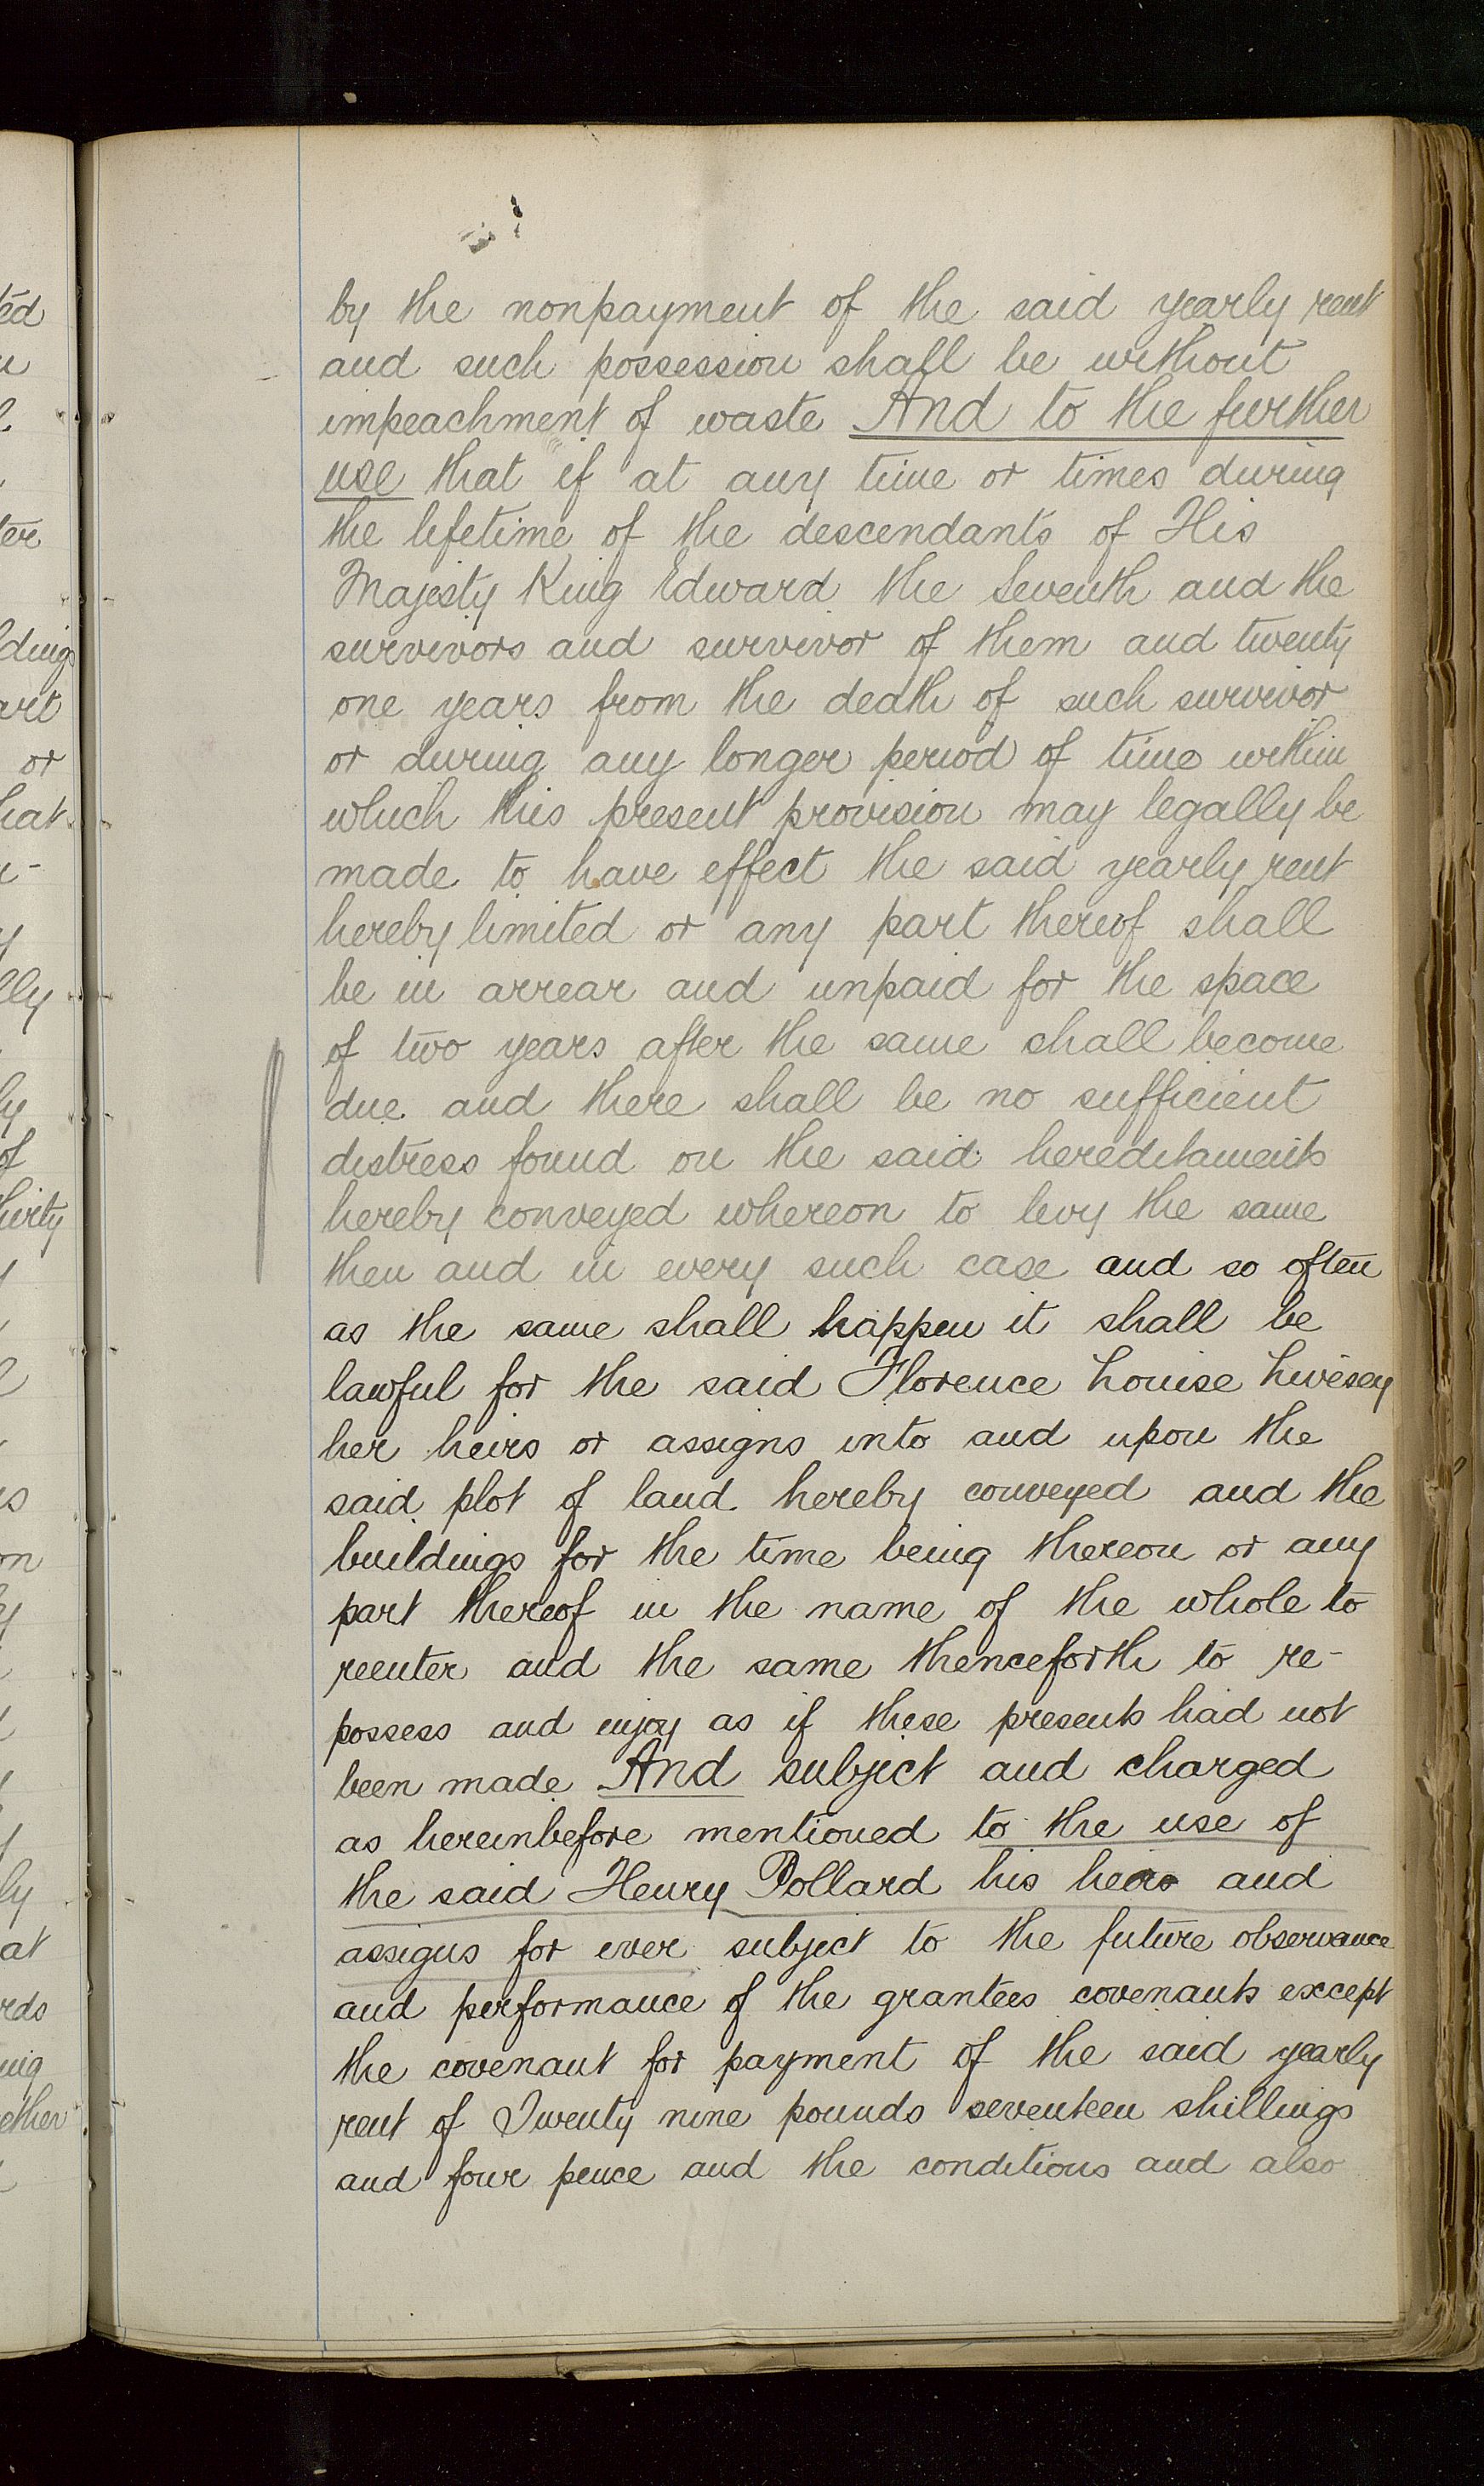 by the nonpayment of the said yearly rent
and such possession shall be without
impeachment of waste And to the further
use that if at any time or times during
the lifetime of the descendants of His
Majesty King Edward the Seventh and the
survivors and survivor of them and twenty
one years from the death of such survivor
or during any longer period of time within
which this present provision may legally be
made to have effect the said yearly rent
hereby limited or any part thereof shall
be in arrear and unpaid for the space
of two years after the same shall become
due and there shall be no sufficient
distress found on the said hereditaments
hereby conveyed whereon to levy the same
then and in every such case and so often
as the same shall happen it shall be
lawful for the said Florence Louise Livesey
her heirs or assigns into and upon the
said plot of land hereby conveyed and the
buildings for the time being thereon or any
part thereof in the name of the whole to
reenter and the same thenceforth to re-
possess and enjoy as if these presents had not
been made And subject and charged
as hereinbefore mentioned to the use of
the said Henry Pollard his heirs and
assigns for ever subject to the future observance
and performance of the grantees covenants except
the covenant for payment of the said yearly
rent of Twenty nine pounds seventeen shillings
and four pence and the conditions and also